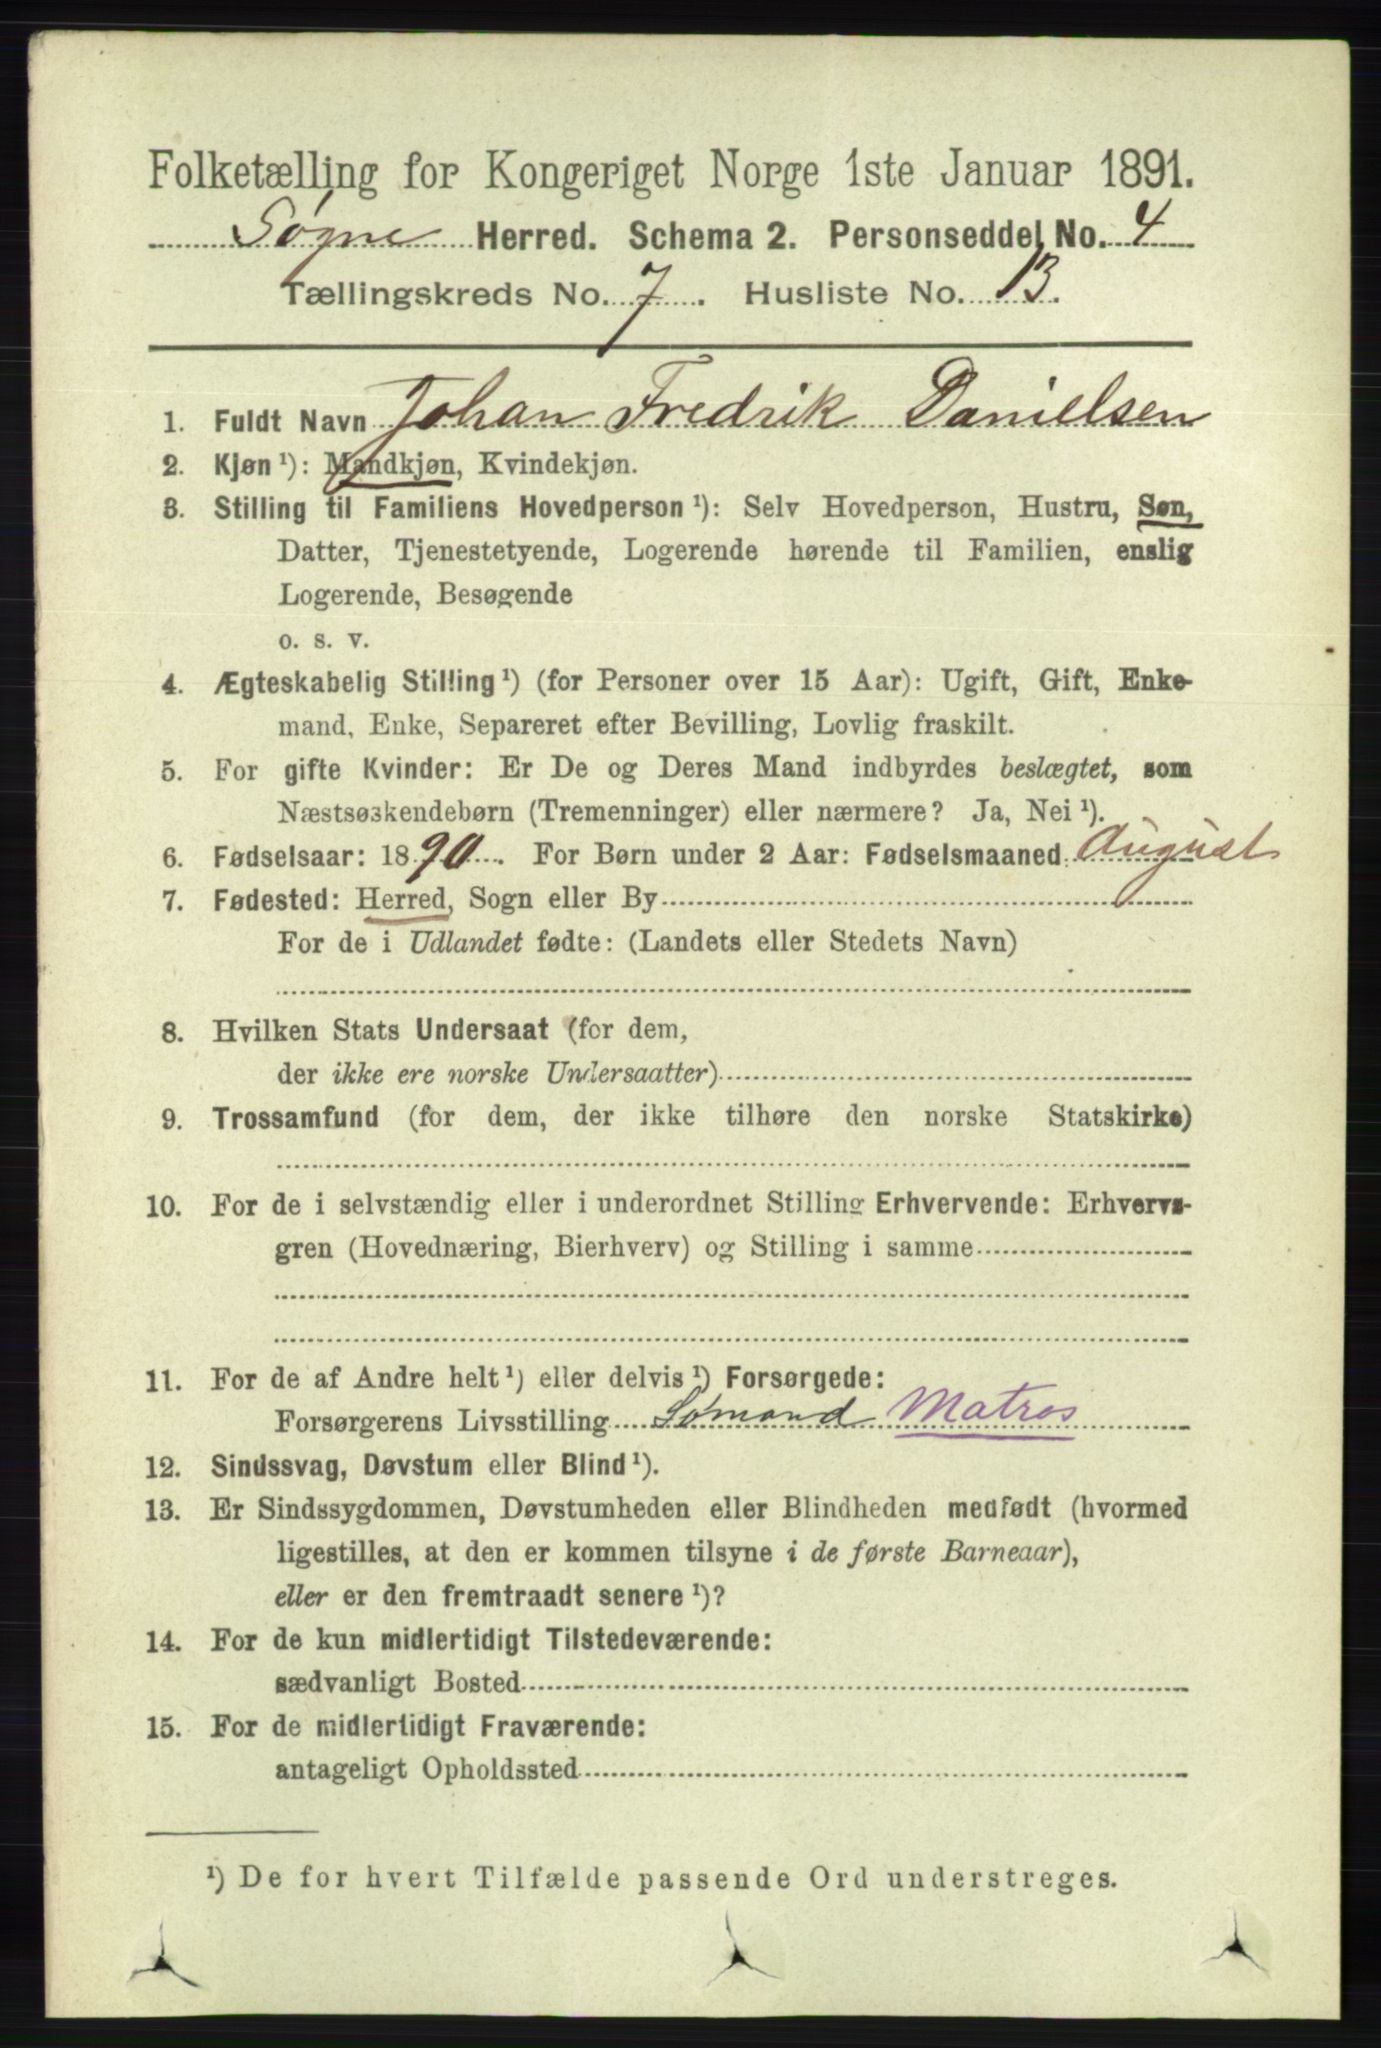 Folketælling for Kongeriget Norge 1ste Januar 1891.
Søgne Herred. Schema 2. Personseddel No. 4
Tællingskreds No. 7. Husliste No. 13.
1. Fuldt Navn Johan Fredrik Danielsen
2. Kjøn ¹): Mandkjøn, Kvindekjøn.
3. Stilling til Familiens Hovedperson ¹): Selv Hovedperson, Hustru, Søn,
Datter, Tjenestetyende, Logerende hørende til Familien, enslig
Logerende, Besøgende
o. s. v.
4. Ægteskabelig Stilling ¹) (for Personer over 15 Aar): Ugift, Gift, Enke-
mand, Enke, Separeret efter Bevilling, Lovlig fraskilt.
5. For gifte Kvinder: Er De og Deres Mand indbyrdes beslægtet, som
Næstsøskendebørn (Tremenninger) eller nærmere? Ja, Nei ¹).
6. Fødselsaar: 1890. For Børn under 2 Aar: Fødselsmaaned August
7. Fødested: Herred, Sogn eller By
For de i Udlandet fødte: (Landets eller Stedets Navn)
8. Hvilken Stats Undersaat (for dem,
der ikke ere norske Undersaatter)
9. Trossamfund (for dem, der ikke tilhøre den norske Statskirke)
10. For de i selvstændig eller i underordnet Stilling Erhvervende: Erhvervs-
gren (Hovednæring, Bierhverv) og Stilling i samme
11. For de af Andre helt ¹) eller delvis ¹) Forsørgede:
Forsørgerens Livsstilling Sømand Matros
12. Sindssvag, Døvstum eller Blind ¹).
13. Er Sindssygdommen, Døvstumheden eller Blindheden medfødt (hvormed
ligestilles, at den er kommen tilsyne i de første Barneaar),
eller er den fremtraadt senere ¹)?
14. For de kun midlertidigt Tilstedeværende:
sædvanligt Bosted
15. For de midlertidigt Fraværende:
antageligt Opholdssted
¹) De for hvert Tilfælde passende Ord understreges.